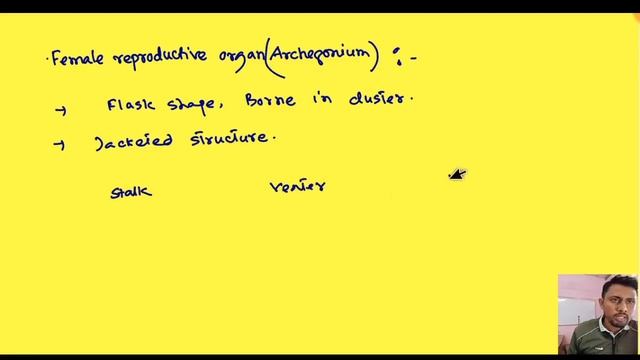 · Female reproductive organ (Archegonium) :-
→ Flask shape, Borne in cluster.
→ Jacketed structure.
stalk venter